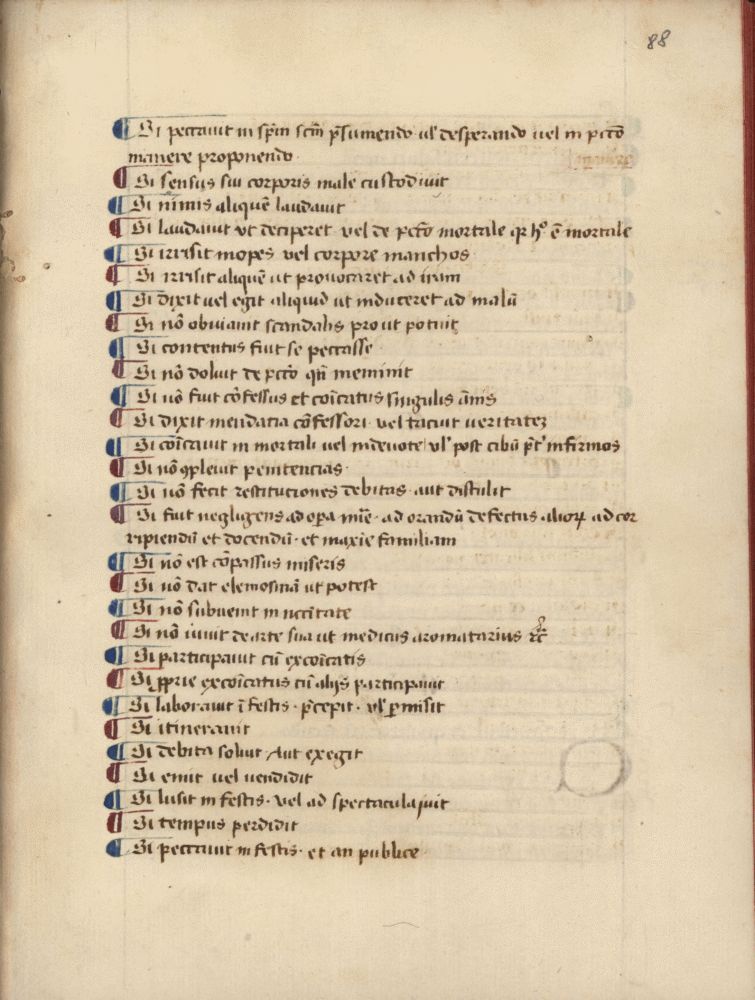 88
Si peccauit in sp̄m scm̄ p̄sumendo ul' desperando uel in pctō
manere proponendo
Si sensus sui corporis male custodiuit
Si nimis aliquē laudauit
Si laudauit ut deciperet vel de pctō mortale qr hº ē mortale
Si irrisit inopes vel corpore manchos
Si irrisit aliquē ut prouocaret ad iram
Si dixit uel egit aliquid ut induceret ad malū
Si nō obuiauit scandalis prout potuit
Si contentus fuit se peccasse
Si nō doluit de pctō qn̄ meminit
Si nō fuit cōfessus et coīcatus singulis ānis
Si dixit mendatia cōfessori vel tacuit ueritatez
Si coīcauit in mortali uel indeuote ul' post cibū p̄t' infirmos
Si nō ꝯpleuit penitencias
Si nō fecit restituciones debitas aut distulit
Si fuit negligens ad opa mīe · ad orandū defectus alioꝝ ad cor
ripiendū et docendū · et maxīe familiam
Si nō est cōpassus miseris
Si nō dat elemosinā ut potest
Si nō subuenit in nccītate
Si nō iuuit de arte sua ut medicus aromatarius ⁊c̄
Si participauit cū excoīcatis
Si ꝓprie excoīcatus cū alijs participauit
Si laborauit ī festis · p̄cepit · ul' ꝑmisit
Si itinerauit
Si debita soluit Aut exegit
Si emit uel uendidit
Si lusit in festis · vel ad spectacula iuit
Si tempus perdidit
Si peccauit in festis · et an publice